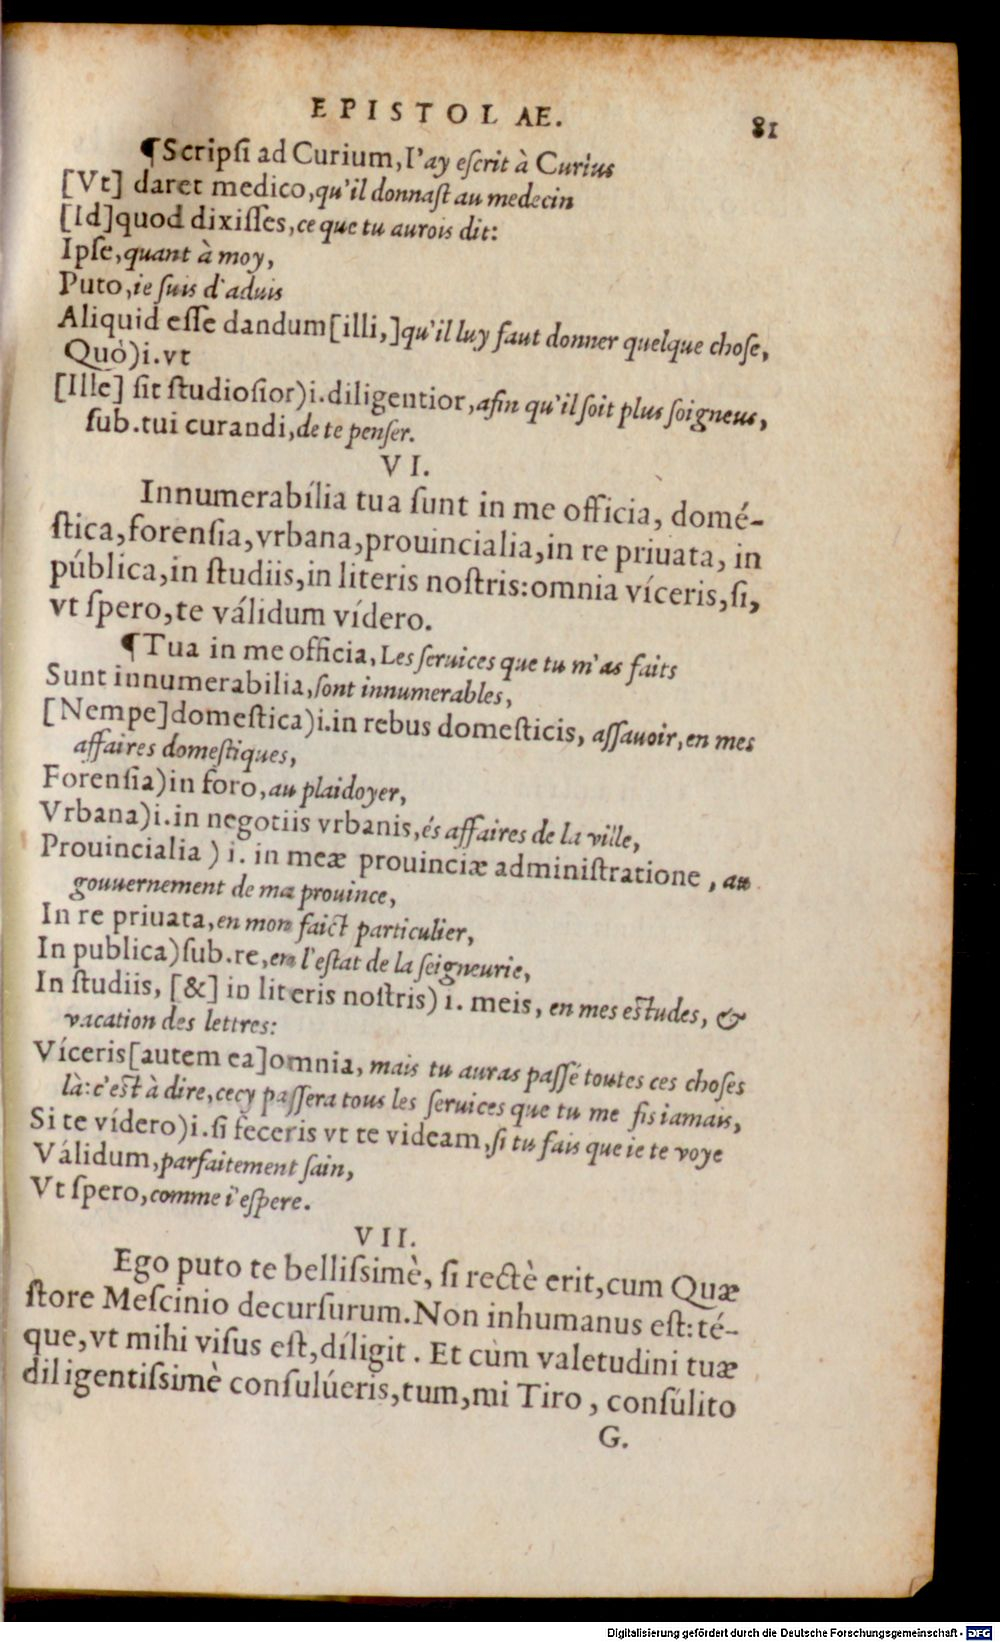 EPISTOLAE. 81
¶Scripſi ad Curium, I'ay eſcrit à Curius
[Vt] daret medico, qu'il donnaſt au medecin
[Id]quod dixiſſes, ce que tu aurois dit:
Ipſe, quant à moy,
Puto, ie ſuis d'aduis
Aliquid eſſe dandum[illi,]qu'il luy faut donner quelque choſe,
Quò)i.vt
[Ille] ſit ſtudioſior)i.diligentior, afin qu'il ſoit plus ſoigneus,
ſub.tui curandi, de te penſer.
VI.
Innumerabília tua ſunt in me officia, domé-
ſtica, forenſia, vrbana, prouincialia, in re priuata, in
pública, in ſtudiis, in literis noſtris: omnia víceris, ſi,
vt ſpero, te válidum vídero.
¶Tua in me officia, Les ſeruices que tu m'as faits
Sunt innumerabilia, ſont innumerables,
[Nempe]domeſtica)i.in rebus domeſticis, aſſauoir, en mes
affaires domeſtiques,
Forenſia)in foro, au plaidoyer,
Vrbana)i.in negotiis vrbanis, és affaires de la ville,
Prouincialia ) i. in meæ prouinciæ adminiſtratione, au
gouuernement de ma prouince,
In re priuata, en mon faict particulier,
In publica)ſub.re, en l'eſtat de la ſeigneurie,
In ſtudiis, [&] in literis noſtris) i. meis, en mes eſtudes, &
vacation des lettres:
Víceris[autem ea]omnia, mais tu auras paſſé toutes ces choſes
là: c'eſt à dire, cecy paſſera tous les ſeruices que tu me fis iamais,
Si te vídero)i.ſi feceris vt te videam, ſi tu fais que ie te voye
Válidum, parfaitement ſain,
Vt ſpero, comme i'eſpere.
VII.
Ego puto te belliſsimè, ſi rectè erit, cum Quæ
ſtore Meſcinio decurſurum. Non inhumanus eſt: té-
que, vt mihi viſus eſt, díligit. Et cùm valetudini tuæ
diligentiſsimè conſulúeris, tum, mi Tiro, conſúlito
G.
Digitalisierung gefördert durch die Deutsche Forschungsgemeinschaft - DFG